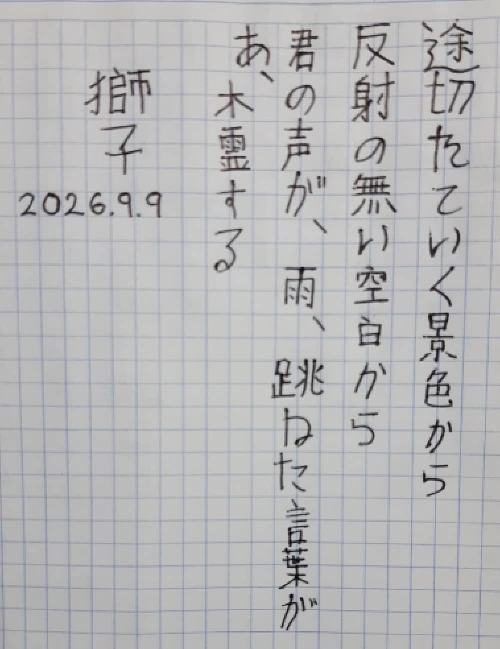 途切たていく景色から
反射の無い空白から
君の声が、雨、跳ねた言葉が
あ、木霊する
獅子
2026.9.9